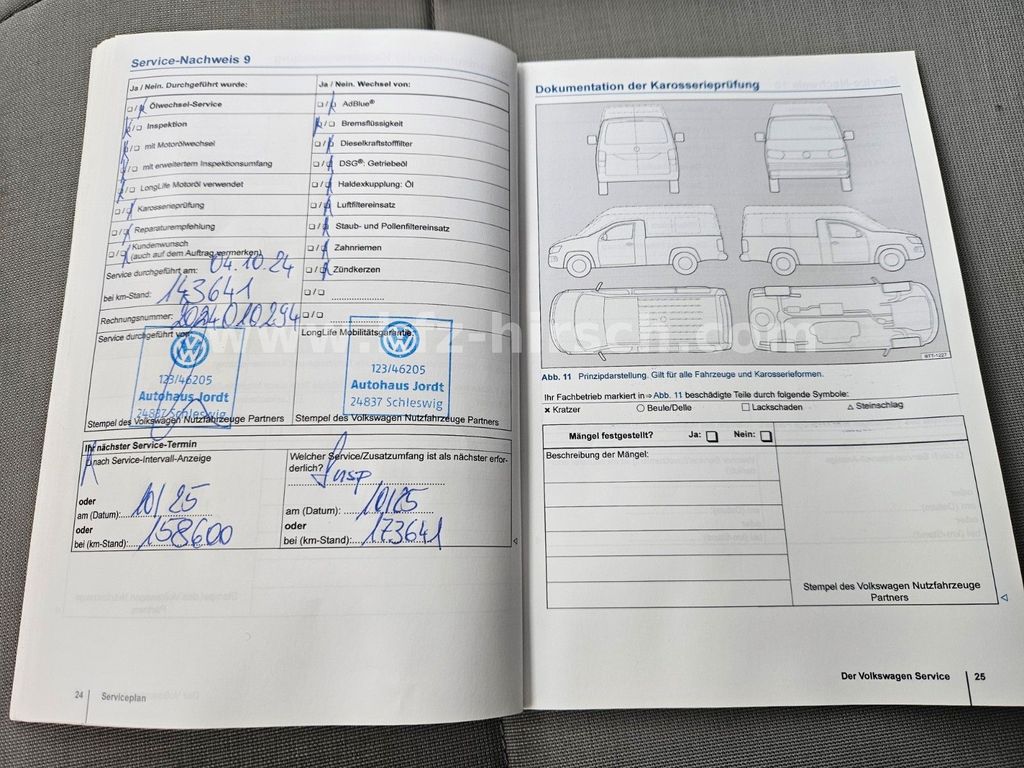 Service-Nachweis 9
Ja / Nein. Durchgeführt wurde:
Ja / Nein. Wechsel von:
Ölwechsel-Service
AdBlue®
Inspektion
Bremsflüssigkeit
mit Motorölwechsel
Dieselkraftstofffilter
mit erweitertem Inspektionsumfang
DSG®: Getriebeöl
LongLife Motoröl verwendet
Haldexkupplung: Öl
Karosserieprüfung
Luftfiltereinsatz
Reparaturempfehlung
Staub- und Pollenfiltereinsatz
Kundenwunsch
(auch auf dem Auftrag vermerken)
Zahnriemen
Service durchgeführt am: 04.10.24
Zündkerzen
bei km-Stand: 143641
Rechnungsnummer: 2024010294
Service durchgeführt von:
LongLife Mobilitätsgarantie:
123/46205
Autohaus Jordt
24837 Schleswig
123/46205
Autohaus Jordt
24837 Schleswig
Stempel des Volkswagen Nutzfahrzeuge Partners
Stempel des Volkswagen Nutzfahrzeuge Partners
Ihr nächster Service-Termin
nach Service-Intervall-Anzeige
oder
am (Datum): 10/25
oder
bei (km-Stand): 158600
Welcher Service/Zusatzumfang ist als nächster erfor-
derlich? Insp
am (Datum): 10/25
oder
bei (km-Stand): 173641
24 Serviceplan
Dokumentation der Karosserieprüfung
BTT-1227
Abb. 11 Prinzipdarstellung. Gilt für alle Fahrzeuge und Karosserieformen.
Ihr Fachbetrieb markiert in ⇒ Abb. 11 beschädigte Teile durch folgende Symbole:
× Kratzer ○ Beule/Delle □ Lackschaden △ Steinschlag
Mängel festgestellt? Ja: Nein:
Beschreibung der Mängel:
Stempel des Volkswagen Nutzfahrzeuge
Partners
Der Volkswagen Service 25
www.kfz-hirsch.com